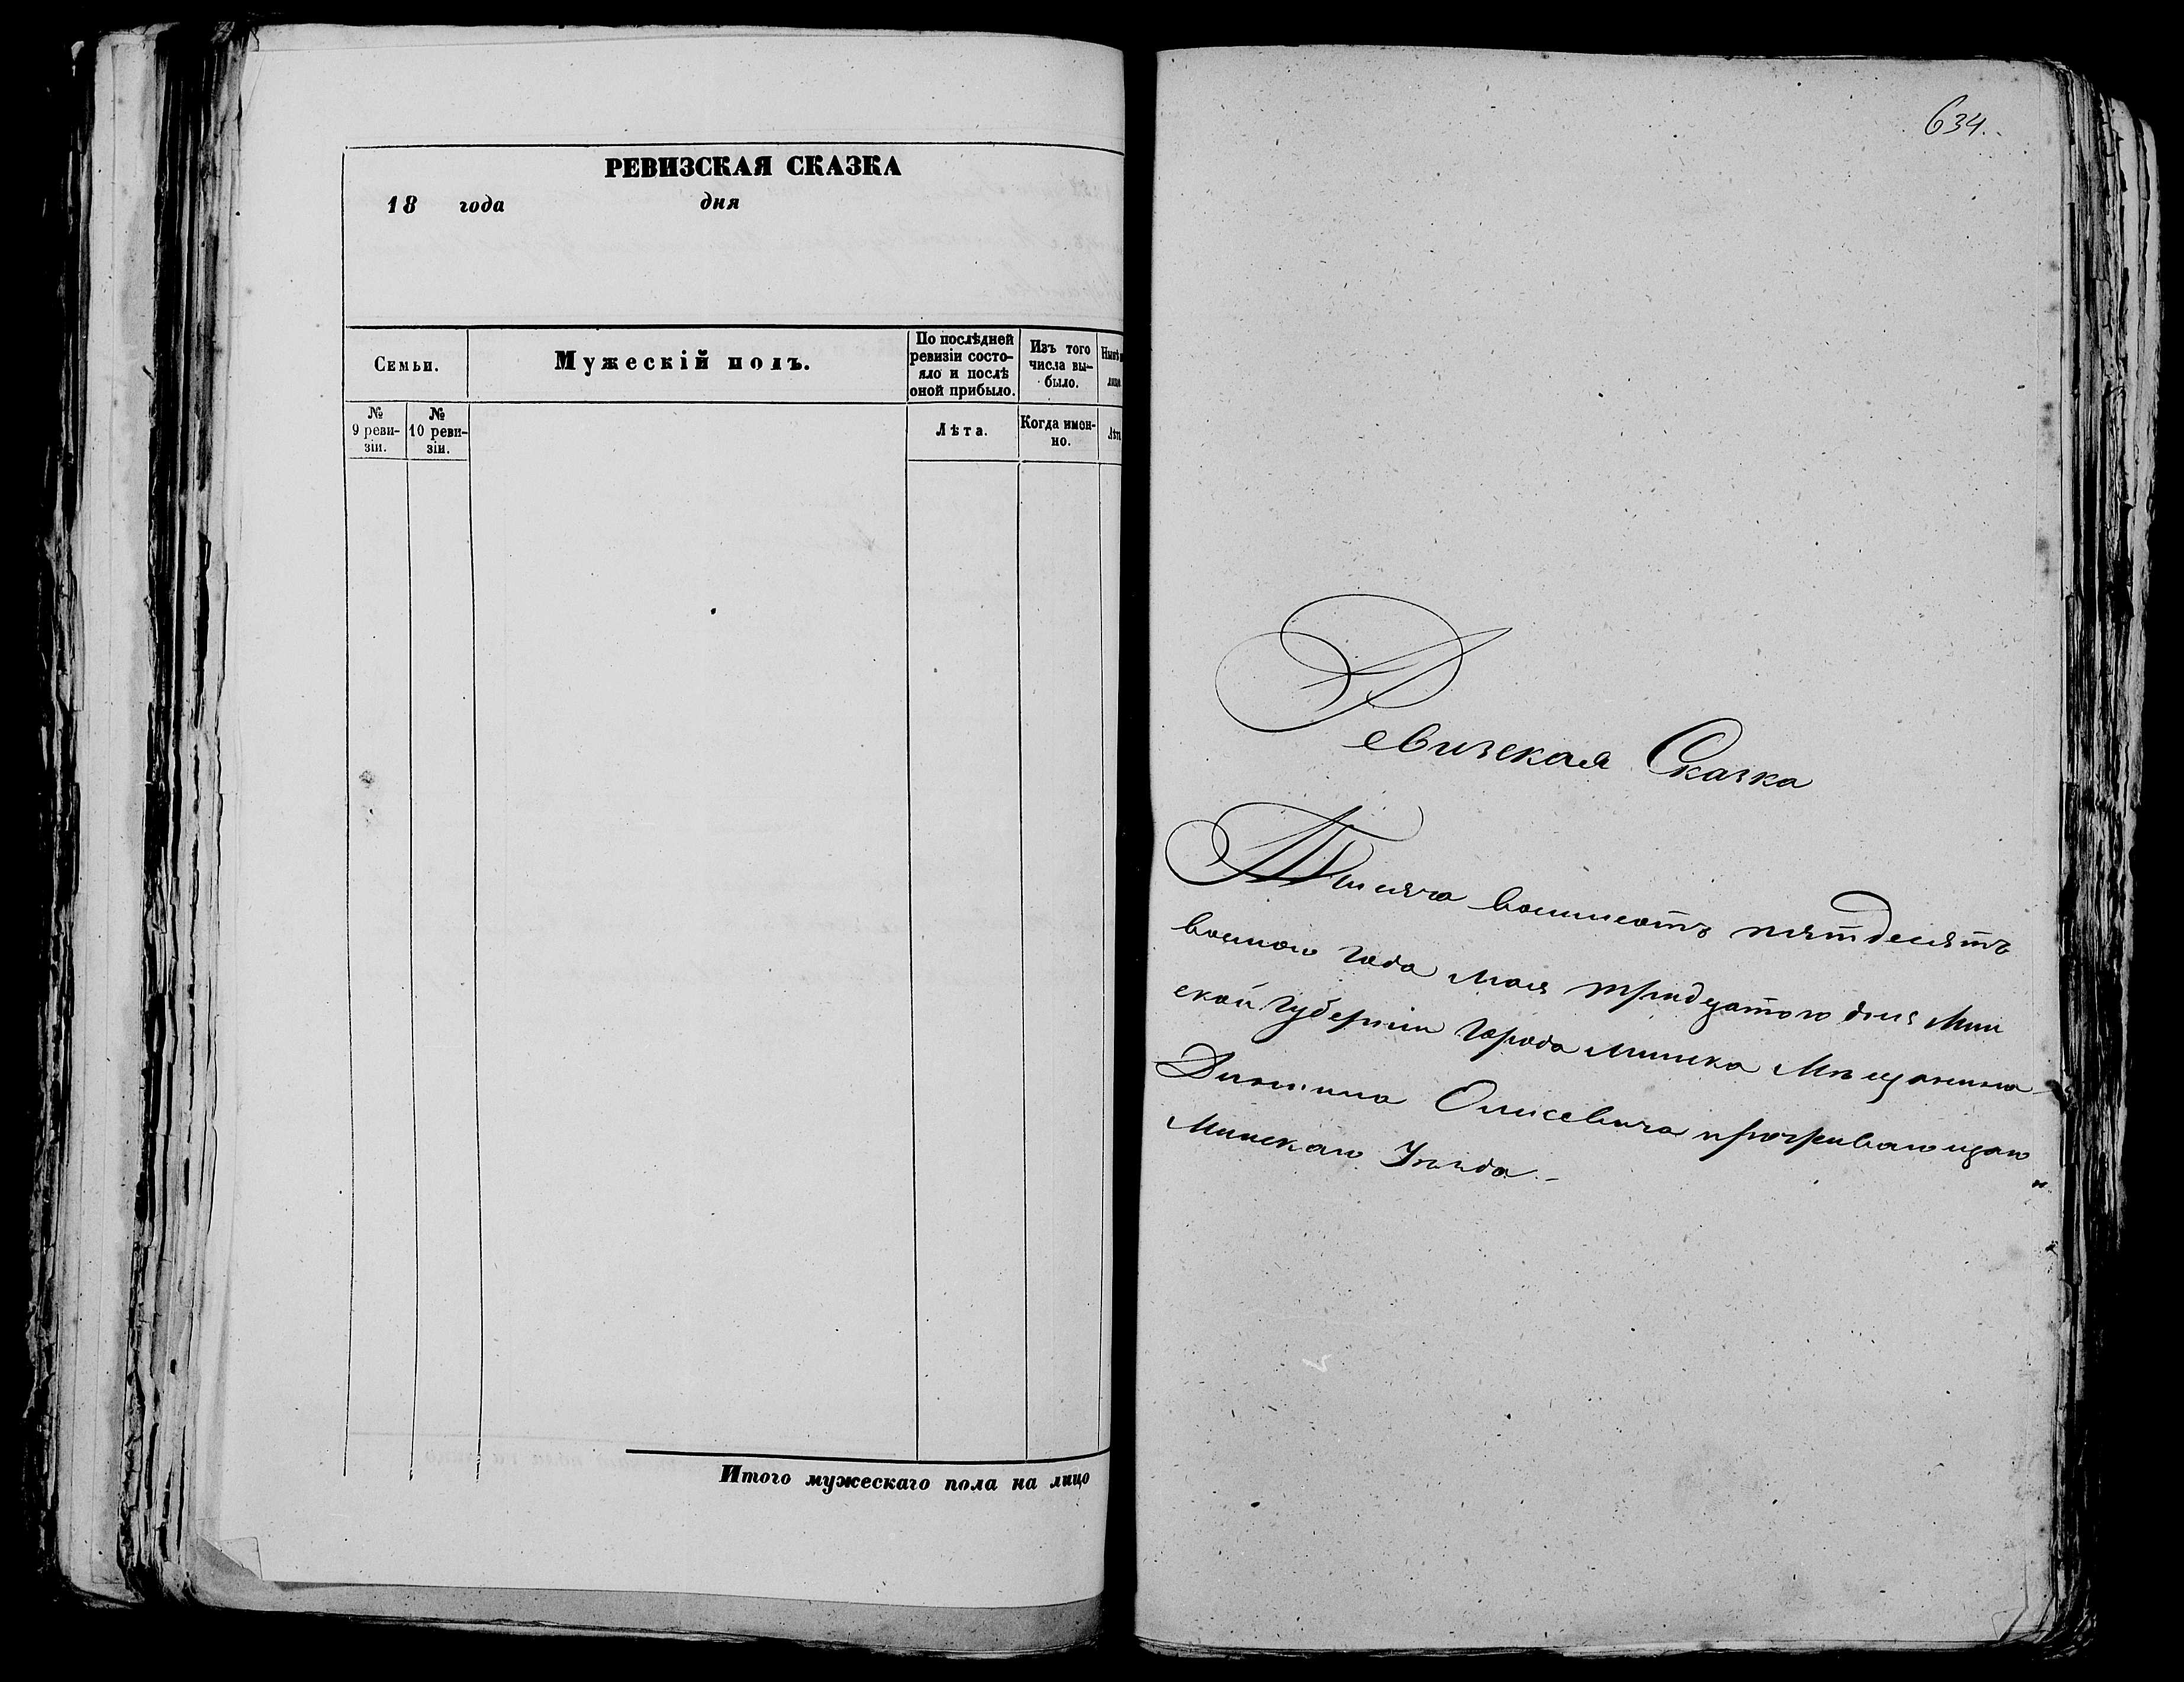 РЕВИЗСКАЯ СКАЗКА
18 года дня
Семьи.
Мужескій полъ.
По послѣдней
ревизіи состо-
яло и послѣ
оной прибыло.
Изъ того
числа вы-
было.
№
9 реви-
зіи.
№
10 реви-
зіи.
Лѣта.
Когда имен-
но.
Итого мужескаго пола на лицо
634.
Ревизская Сказка
Тысяча восимсотъ пятдесятъ
восмого года мая тридцатого дня Мин
ской губерніи города минска Мѣщанина
Олисевича проживающаго
Минскаго Уѣзда.